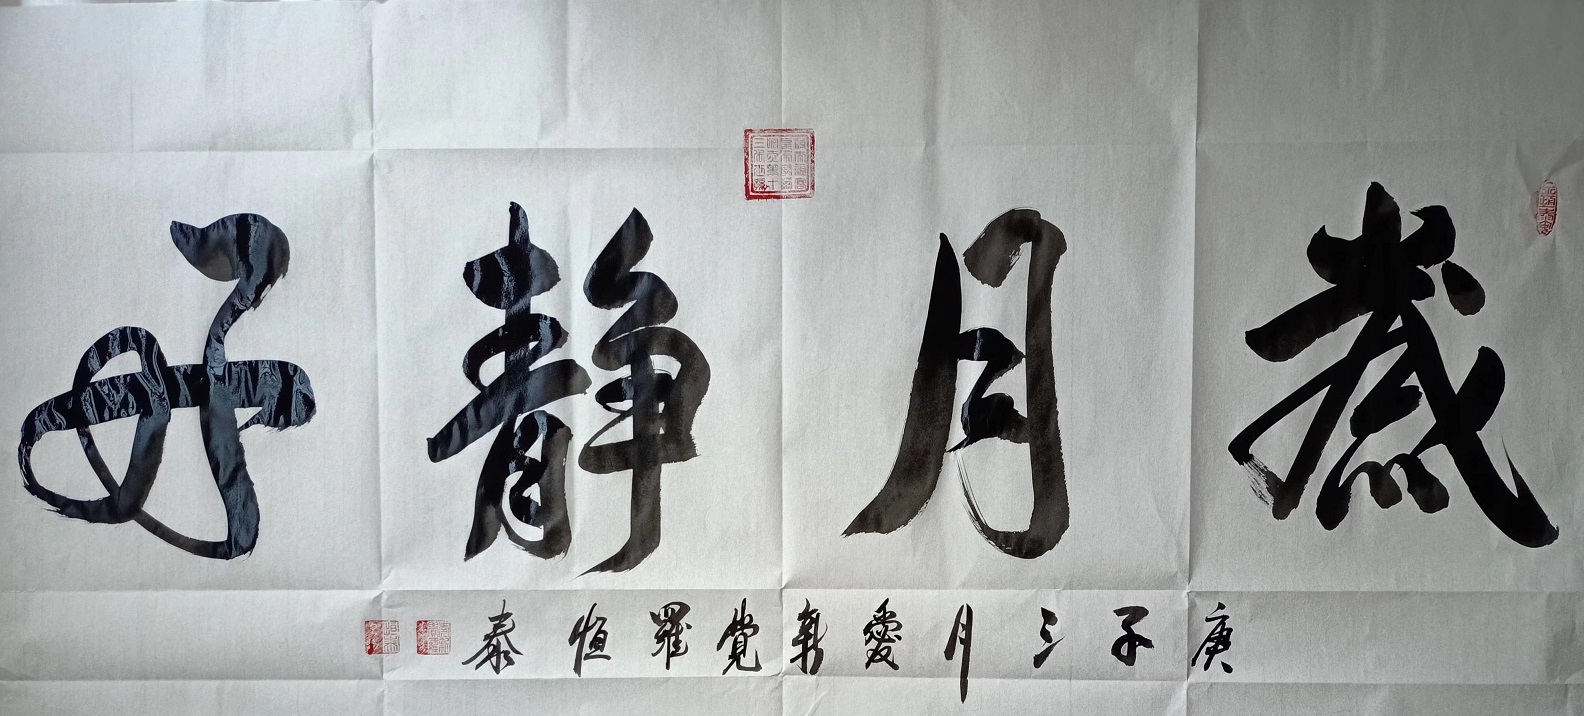 歲月靜好
庚子三月愛新覺羅恒泰